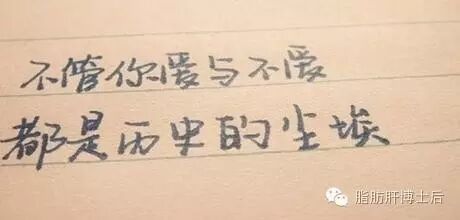 不管你爱与不爱
都是历史的尘埃
脂肪肝博士后